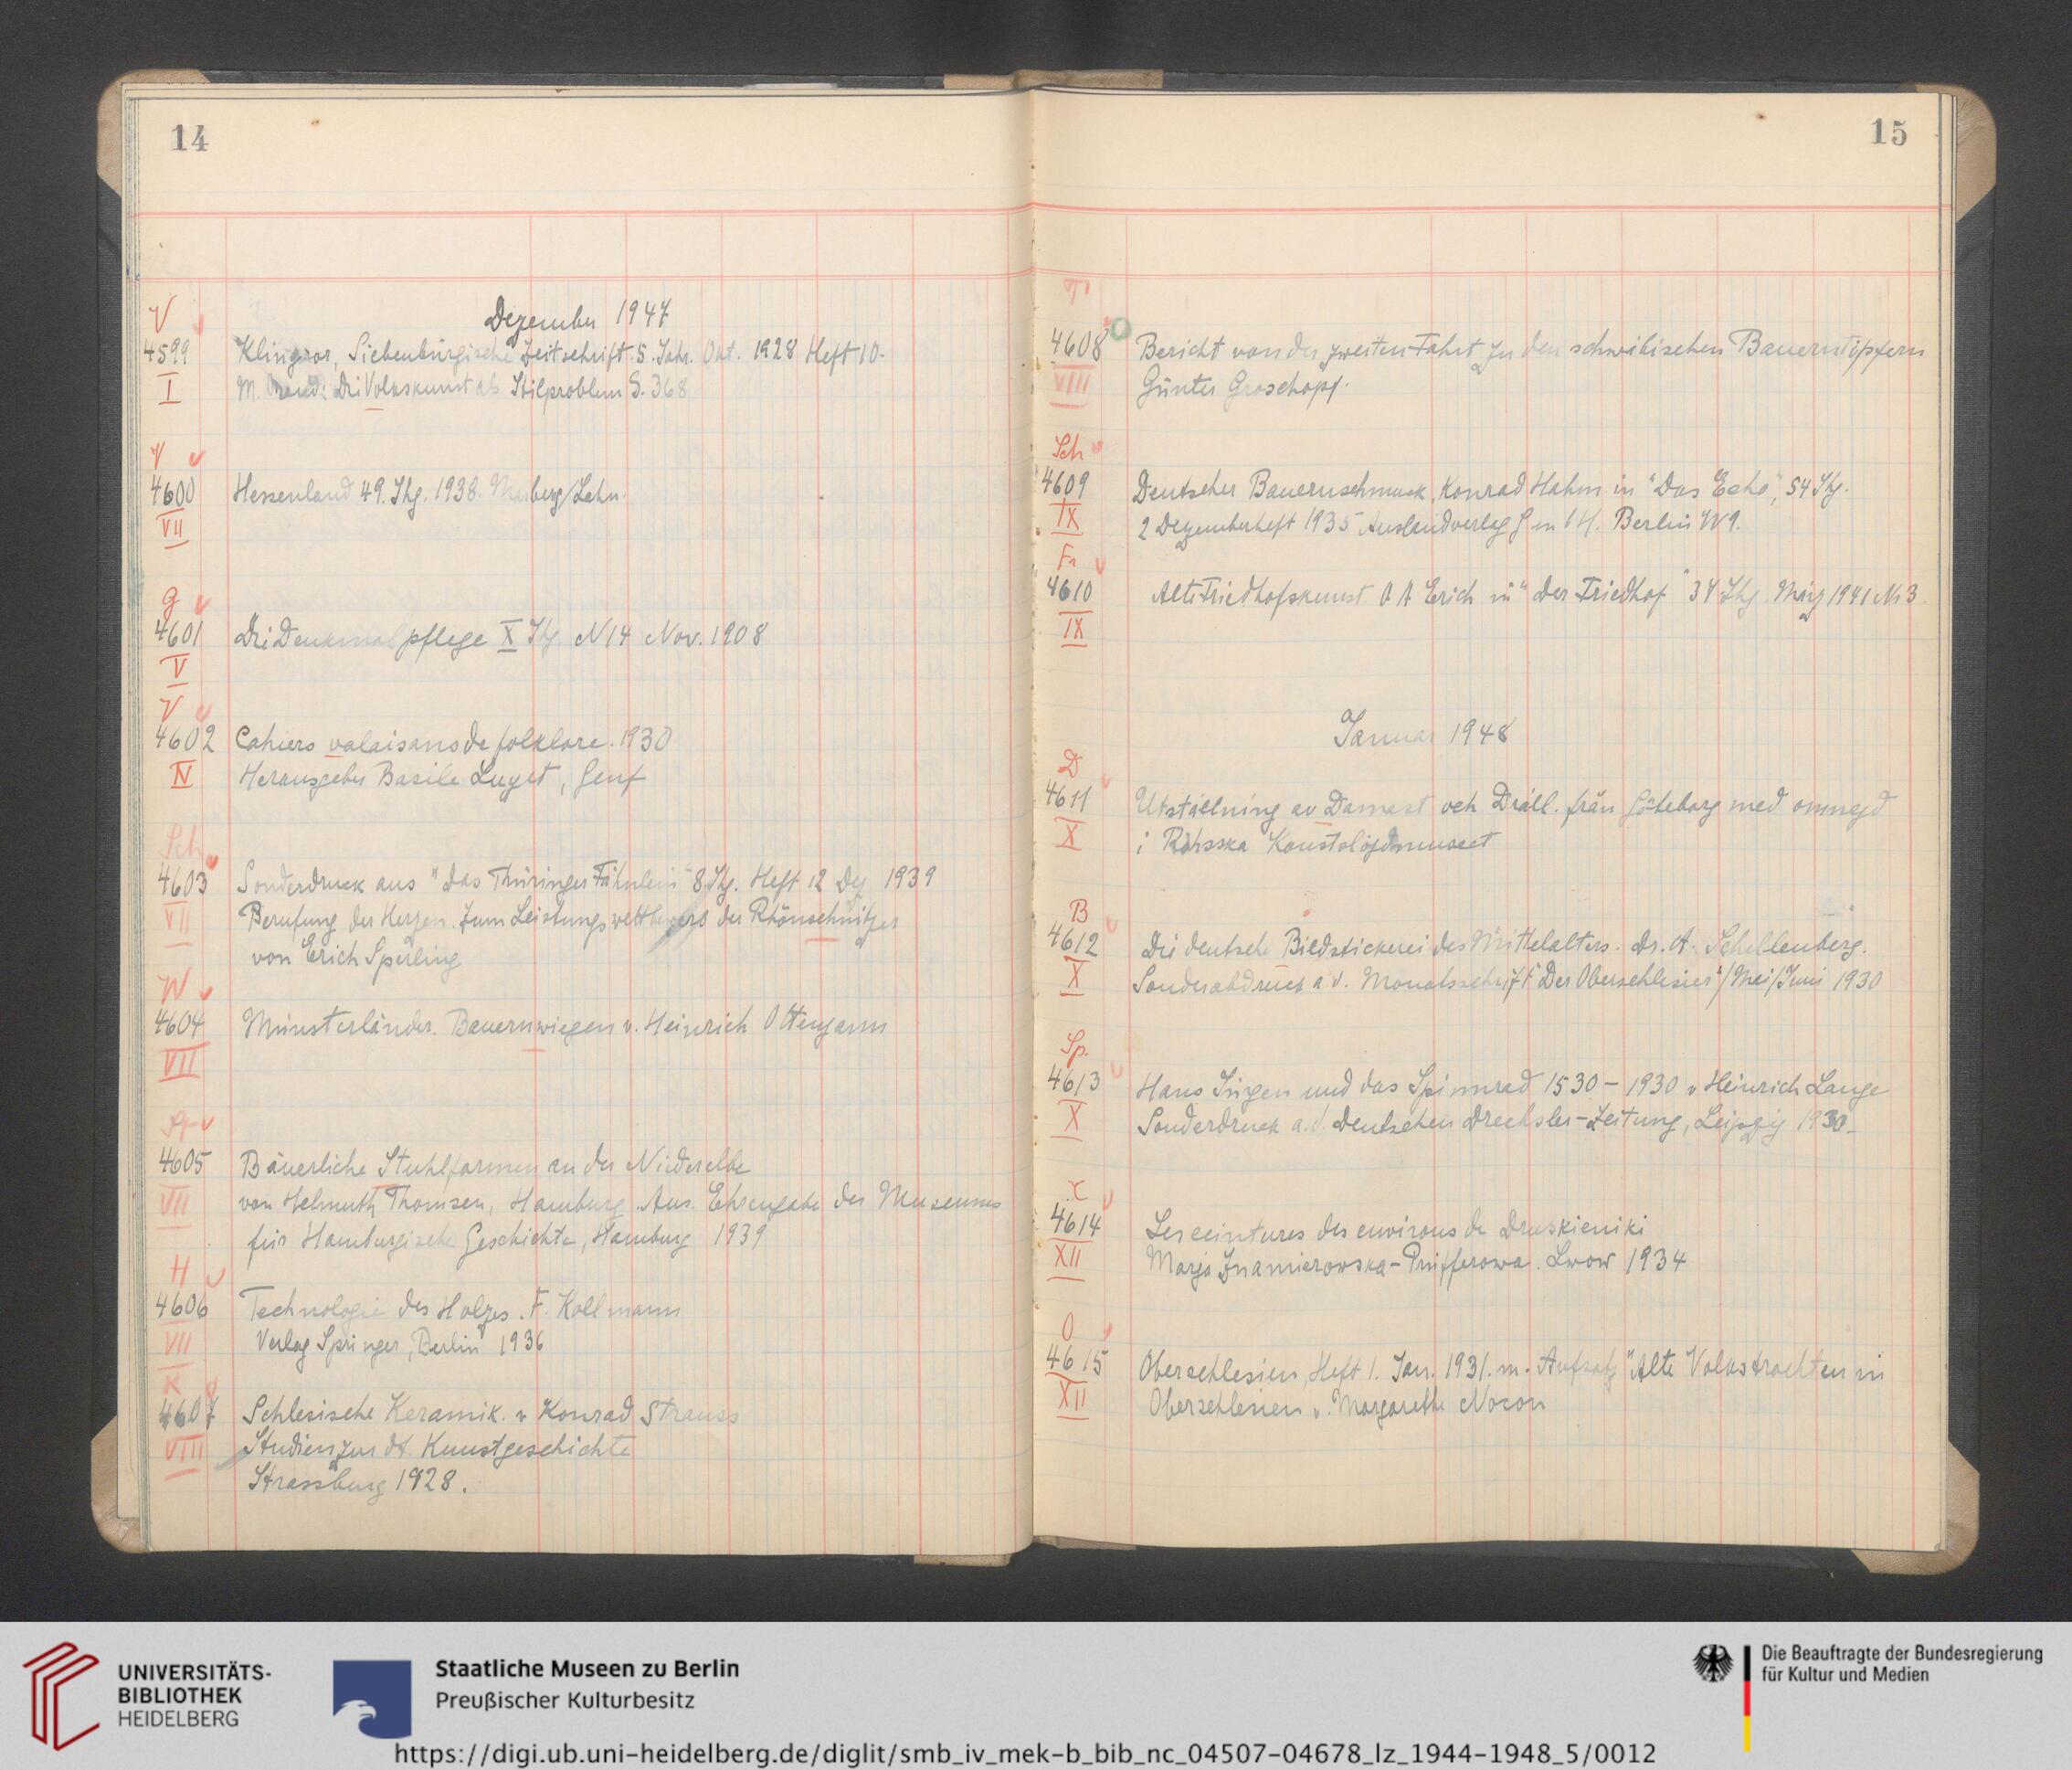 14
Dezember 1947
V
4599 Klingsor, Siebenbürgische Zeitschrift. 5. Jahr. Okt. 1928 Heft 10.
I M. Orend: Die Volkskunst als Stilproblem S. 368
V
4600 Hessenland 49. Jhg. 1938. Marburg/Lahn.
VII
g
4601 Die Denkmalpflege X Jhg. N 14 Nov. 1908
V
V
4602 Cahiers valaisans de folklore. 1930
IV Herausgeber Basile Luyet, Genf
Sch
4603 Sonderdruck aus "das Thüringer Fähnlein" 8. Jhg. Heft 12 Dez 1939
VII Berufung der Herzen. Zum Leistungswettbewerb der Rhönschnitzer
von Erich Sperling
W
4604 Münsterländer. Bauernwiegen v. Heinrich Ottenjann
VII
4605 Bäuerliche Stuhlformen an der Niederelbe
VII von Helmuth Thomsen, Hamburg. Aus. Ehrengabe des Museums
für Hamburgische Geschichte, Hamburg 1939
H
4606 Technologie des Holzes. F. Kollmann
VII Verlag Springer, Berlin 1936
K
4607 Schlesische Keramik. v Konrad Strauss
VIII Studien zur dt. Kunstgeschichte
Strassburg 1928.
15
T
4608 Bericht von der zweiten Fahrt zu den schwäbischen Bauerntöpfern
VIII Günter Groschopf.
Sch
4609 Deutscher Bauernschmuck, Konrad Hahm in "Das Echo", 54 Jhg.
IX 2 Dezemberheft 1935 Auslandverlag G m b H. Berlin W 9.
Fr
4610 Alte Friedhofskunst O A Erich in "der Friedhof" 34 Jhg. März 1941 Nr 3.
IX
Januar 1948
D
4611 Utställning av Damast och Dräll. från Göteborg med omnejd
X i Röhsska Konstslöjdmuseet
B
4612 Die deutsche Bildstickerei des Mittelalters. Dr. A. Schellenberg.
X Sonderabdruck a d. Monatsschrift "Der Oberschlesier" / Mai / Juni 1930
Sp.
4613 Hans Jürgen und das Spinnrad 1530 - 1930 v Heinrich Lange
X Sonderdruck a. d. Deutschen Drechsler-Zeitung, Leipzig 1930
4614 Les ceintures des environs de Druskieniki
XII Marja Znamierowska-Prüfferowa. Lwow 1934
O
4615 Oberschlesien, Heft 1. Jan. 1931. m. Aufsatz "Alte Volkstrachten in
XII Oberschlesien v. Margarethe Nocon
UNIVERSITÄTS-
BIBLIOTHEK
HEIDELBERG
Staatliche Museen zu Berlin
Preußischer Kulturbesitz
Die Beauftragte der Bundesregierung
für Kultur und Medien
https://digi.ub.uni-heidelberg.de/diglit/smb_iv_mek-b_bib_nc_04507-04678_lz_1944-1948_5/0012